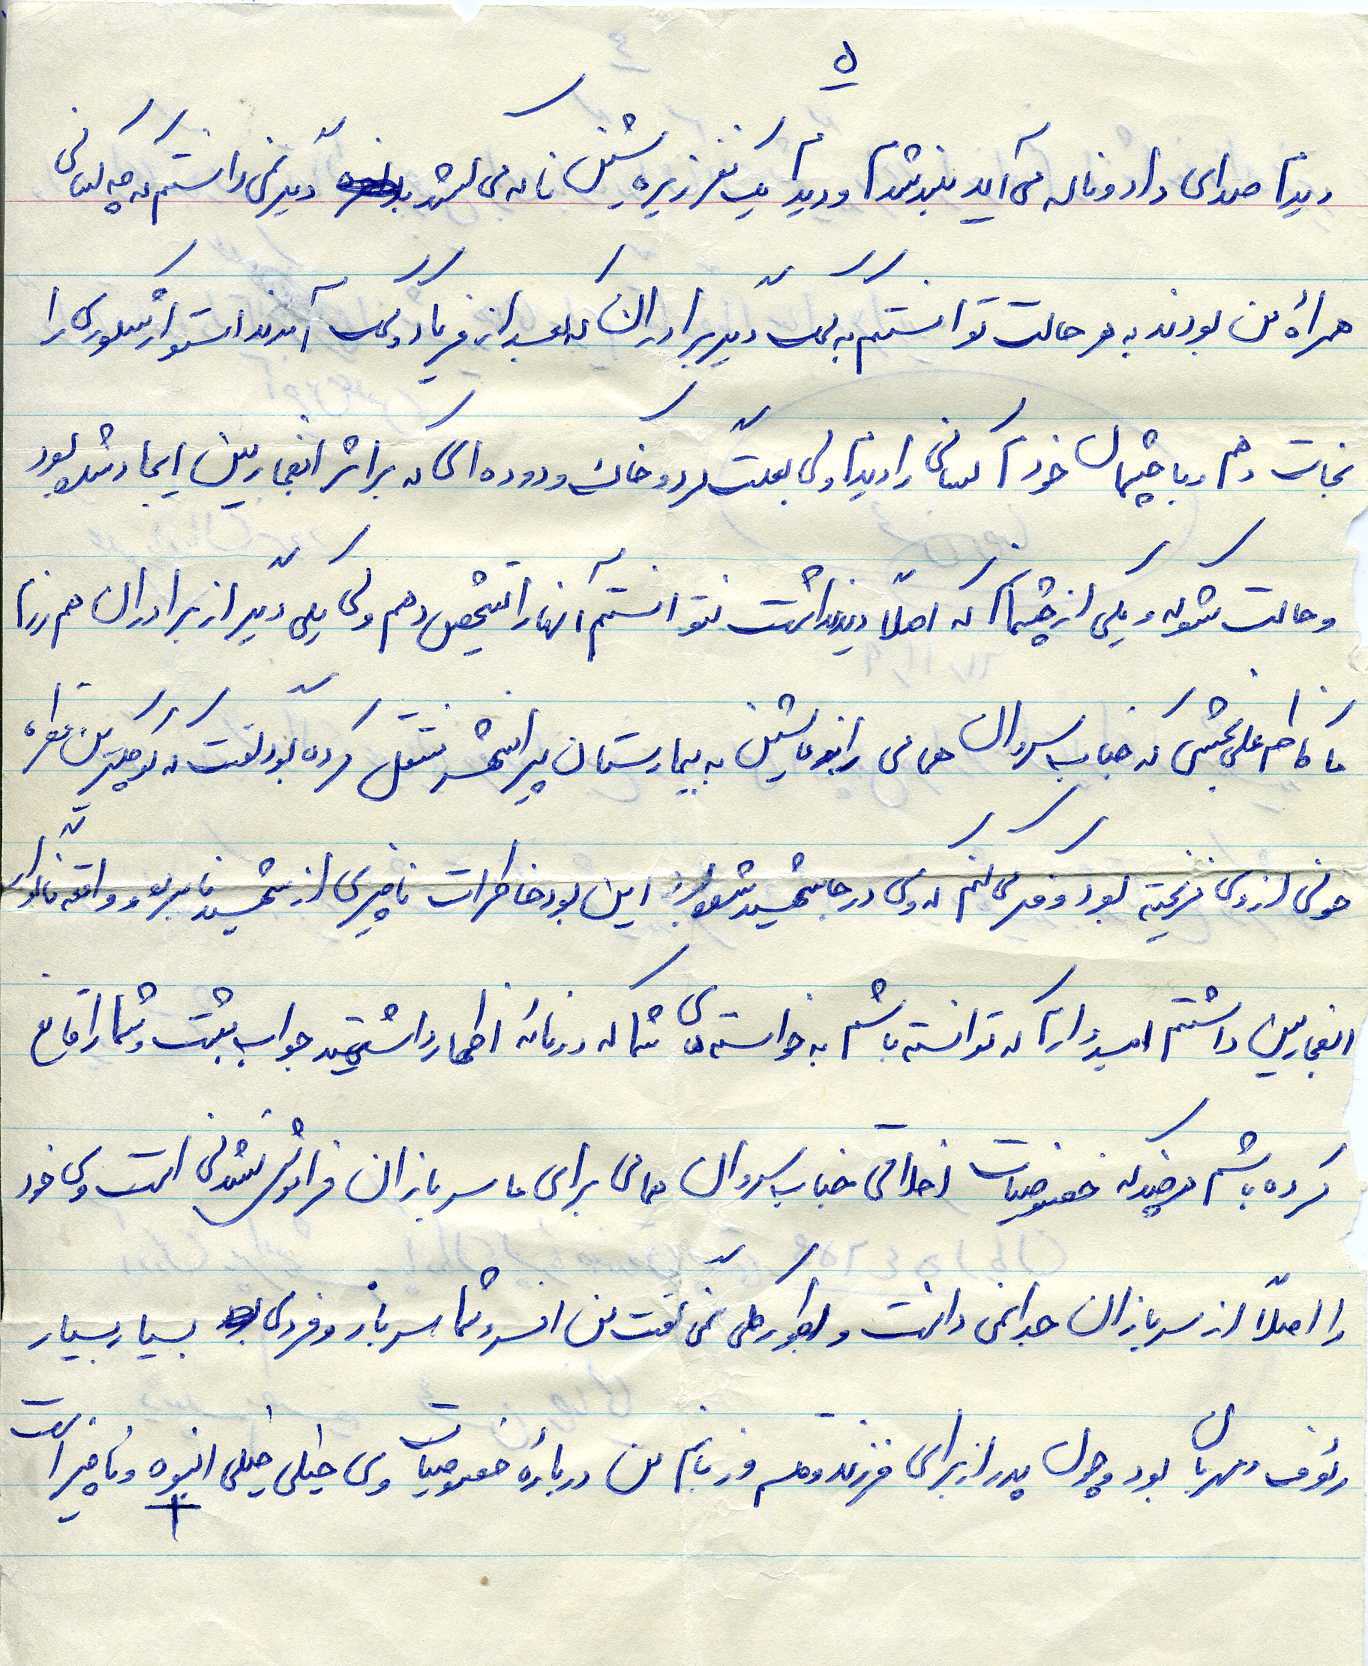 ۵
دیدم صدای داد و ناله می آید بلند شدم و دیدم یک نفر زیر ماشین ناله می کشد دیگر نمی دانستم که چه کسانی
همراه من بودند به هر حالت توانستم به کمک دیگر برادران که بعد از فریاد کمک آمدند استوار را
نجات دهم و با چشمان خودم کسانی را دیدم ولی بعلت گرد و خاک و دوده ای که بر اثر انفجار مین ایجاد شده بود
و حالت شوکه و یکی از چشمانم که اصلاً دید نداشت نتوانستم آنها را تشخیص دهم ولی یکی دیگر از برادران هم رزم
ما کاظم علی بخشی که جناب سروان همامی را با ماشین به بیمارستان پیرانشهر منتقل کرده بود گفت که کوچکترین قطره
خونی از وی نریخته بود و فکر می کنم که وی در جا شهید شد این بود خاطرات ناچیزی از شهید نامبرده و واقعه ناگوار
انفجار مین داشتم امیدوارم که توانسته باشم به خواسته های شما که در نامه اظهار داشتید جواب مثبت و شما را قانع
کرده باشم هر چند که خصوصیات اخلاقی جناب سروان همامی برای ما سربازان فراموش نشدنی است وی خود
را اصلاً از سربازان جدا نمی دانست و بطور کلی نمی گفت من افسر و شما سرباز و فردی بسیار بسیار
رئوف و مهربان بود و چون پدر از برای فرزند و قلم و زبانم من درباره خصوصیات وی خیلی خیلی انبوه و ناچیز است